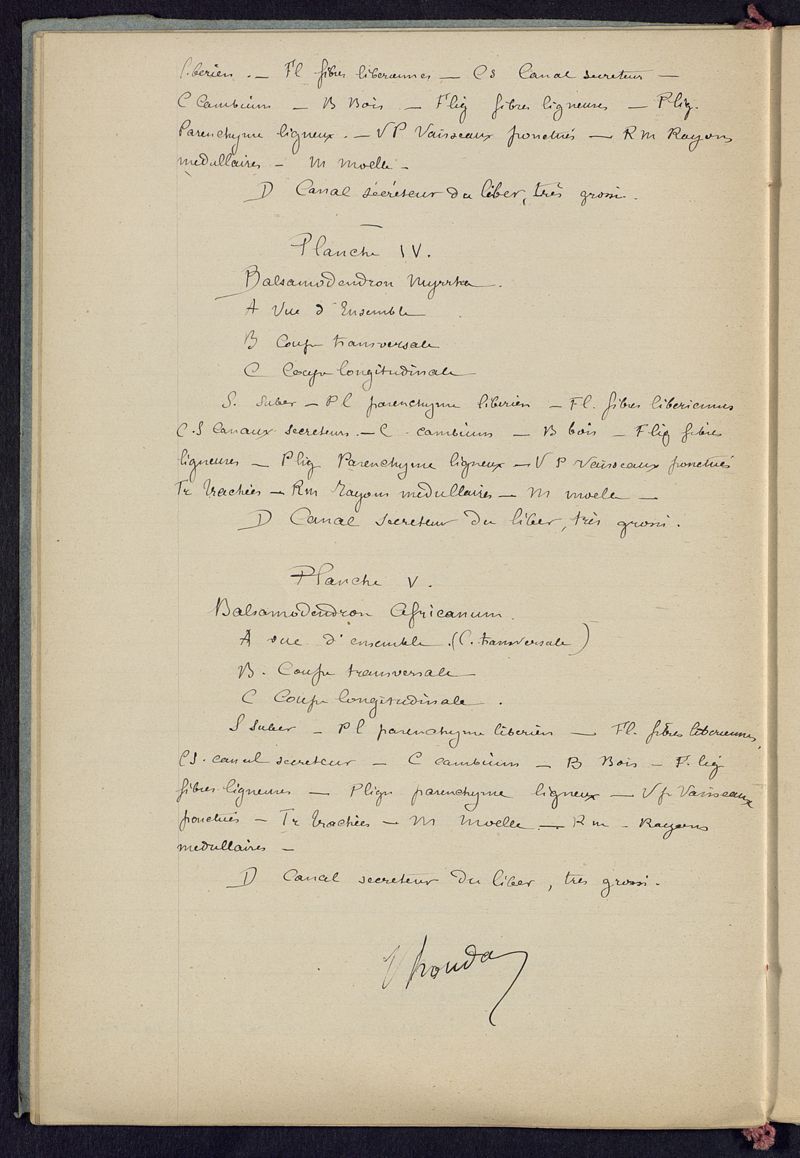 liberien. — Fl fibres liberiennes — Cs Canal secreteur —
C Cambium — B Bois — Flig fibres ligneuses — Plig.
Parenchyme ligneux. — VP Vaisseaux ponctués — Rm Rayons
medullaires — M moelle —
D Canal sécréteur du liber, très grossi.
Planche IV.
Balsamodendron Myrrha.
A Vue d'Ensemble
B Coupe transversale
C Coupe longitudinale
S. Suber — Pl parenchyme liberien — Fl. fibres liberiennes
C.S Canaux secreteurs. — C cambium — B bois — Flig fibres
ligneuses — Plig Parenchyme ligneux — VP Vaisseaux ponctués
Tr trachées — Rm rayons medullaires — M moelle —
D Canal secreteur du liber, très grossi.
Planche V.
Balsamodendron Africanum.
A vue d'ensemble. (C. transversale)
B. Coupe transversale
C Coupe longitudinale.
S Suber — Pl parenchyme liberien — Fl. fibres liberiennes,
CS. canal secreteur — C cambium — B Bois — F. lig
fibres ligneuses — Plign parenchyme ligneux — Vp Vaisseaux
ponctués — Tr trachées — M Moelle — Rm — Rayons
medullaires —
D Canal secreteur du liber, très grossi.